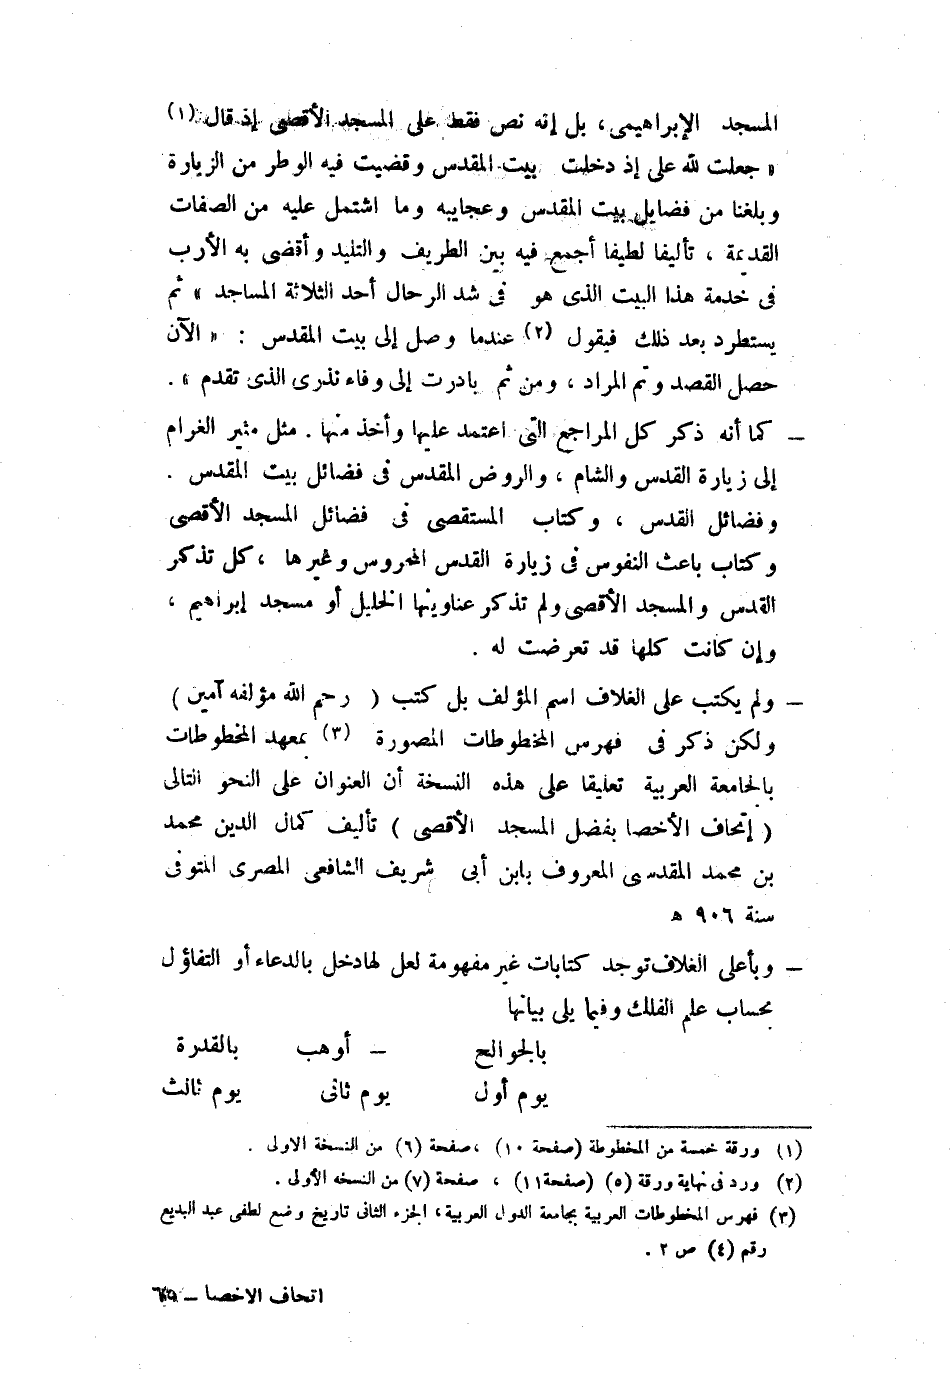 المسجد الإبراهيمى، بل إنه نص فقط على المسجد الأقصى إذ قال (١)
« جعلت لله على إذ دخلت بيت المقدس وقضيت فيه الوطر من الزيارة
وبلغنا من فضايل بيت المقدس وعجايبه وما اشتمل عليه من الصفات
القديمة ، تأليفا لطيفا أجمع فيه بين الطريف والتليد وأقضى به الأرب
فى خدمة هذا البيت الذى هو فى شد الرحال أحد الثلاثة المساجد » ثم
يستطرد بعد ذلك فيقول (٢) عندما وصل إلى بيت المقدس : « الآن
حصل القصد وتم المراد ، ومن ثم بادرت إلى وفاء نذرى الذى تقدم » .
– كما أنه ذكر كل المراجع التى اعتمد عليها وأخذ منها . مثل مثير الغرام
إلى زيارة القدس والشام ، والروض المقدس فى فضائل بيت المقدس .
وفضائل القدس ، وكتاب المستقصى فى فضائل المسجد الأقصى
وكتاب باعث النفوس فى زيارة القدس المحروس وغيرها ، كل تذكر
القدس والمسجد الأقصى ولم تذكر عناوينها الخليل أو مسجد إبراهيم ،
وإن كانت كلها قد تعرضت له .
– ولم يكتب على الغلاف اسم المؤلف بل كتب ( رحم الله مؤلفه آمين )
ولكن ذكر فى فهرس المخطوطات المصورة (٣) بمعهد المخطوطات
بالجامعة العربية تعليقا على هذه النسخة أن العنوان على النحو التالى
( إتحاف الأخصا بفضل المسجد الأقصى ) تأليف كمال الدين محمد
بن محمد المقدسى المعروف بابن أبى شريف الشافعى المصرى المتوفى
سنة ٩٠٦ ه
– وبأعلى الغلاف توجد كتابات غير مفهومة لعل لها دخل بالدعاء أو التفاؤل
بحساب علم الفلك وفيما يلى بيانها
بالجوالح – أوهب بالقدرة
يوم أول يوم ثانى يوم ثالث
(١) ورقة خمسة من المخطوطة (صفحة ١٠) ، صفحة (٦) من النسخة الاولى .
(٢) ورد فى نهاية ورقة (٥) (صفحة ١١) ، صفحة (٧) من النسخه الأولى .
(٣) فهرس المخطوطات العربية بجامعة الدول العربية، الجزء الثانى تاريخ وضع لطفى عبد البديع
رقم (٤) ص ٢ .
اتحاف الاخصا –